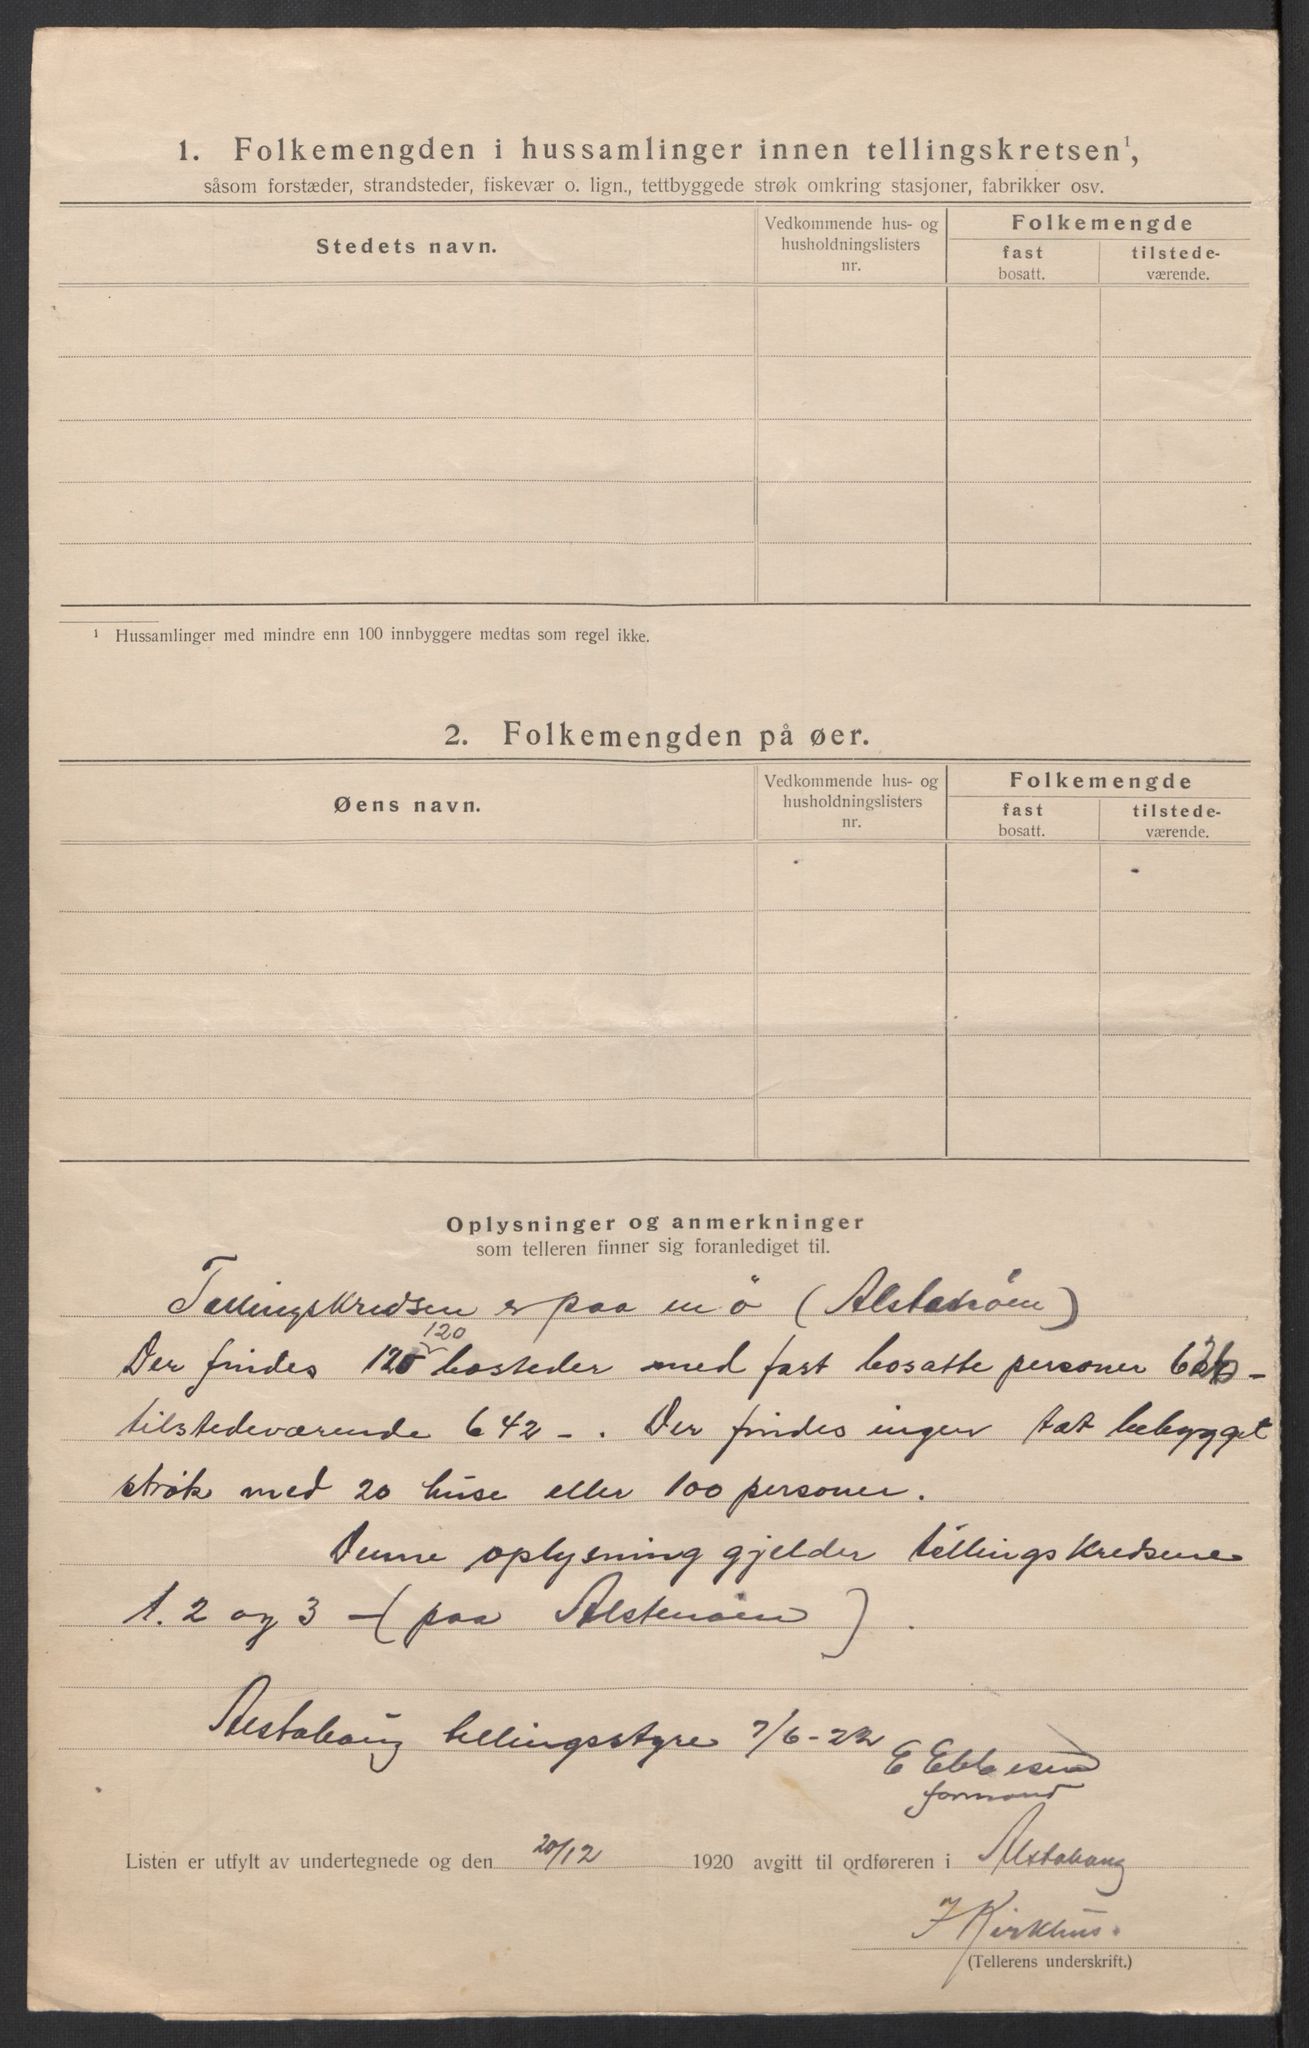 1. Folkemengden i hussamlinger innen tellingskretsen¹,
såsom forstæder, strandsteder, fiskevær o. lign., tettbyggede strøk omkring stasjoner, fabrikker osv.
Stedets navn.
Vedkommende hus- og
husholdningslisters
nr.
Folkemengde
fast
bosatt.
tilstede-
værende.
¹ Hussamlinger med mindre enn 100 innbyggere medtas som regel ikke.
2. Folkemengden på øer.
Øens navn.
Vedkommende hus- og
husholdningslisters
nr.
Folkemengde
fast
bosatt.
tilstede-
værende.
Oplysninger og anmerkninger
som telleren finner sig foranlediget til.
Tællingskredsen er paa en ö (Alstenöen)
120
Der findes bosteder med fast bosatte personer
tilstedeværende 642 -. Der findes ingen tæt bebygget
strøk med 20 huse eller 100 personer.
Denne oplysning gjelder tællingskredsene
1. 2 og 3 - (paa Alstenøen).
Alstahaug tellingsstyre 7/6-22
E Ebbesen
formand
Listen er utfylt av undertegnede og den 20/12 1920 avgitt til ordføreren i Alstahaug
J Kirkhus.
(Tellerens underskrift.)